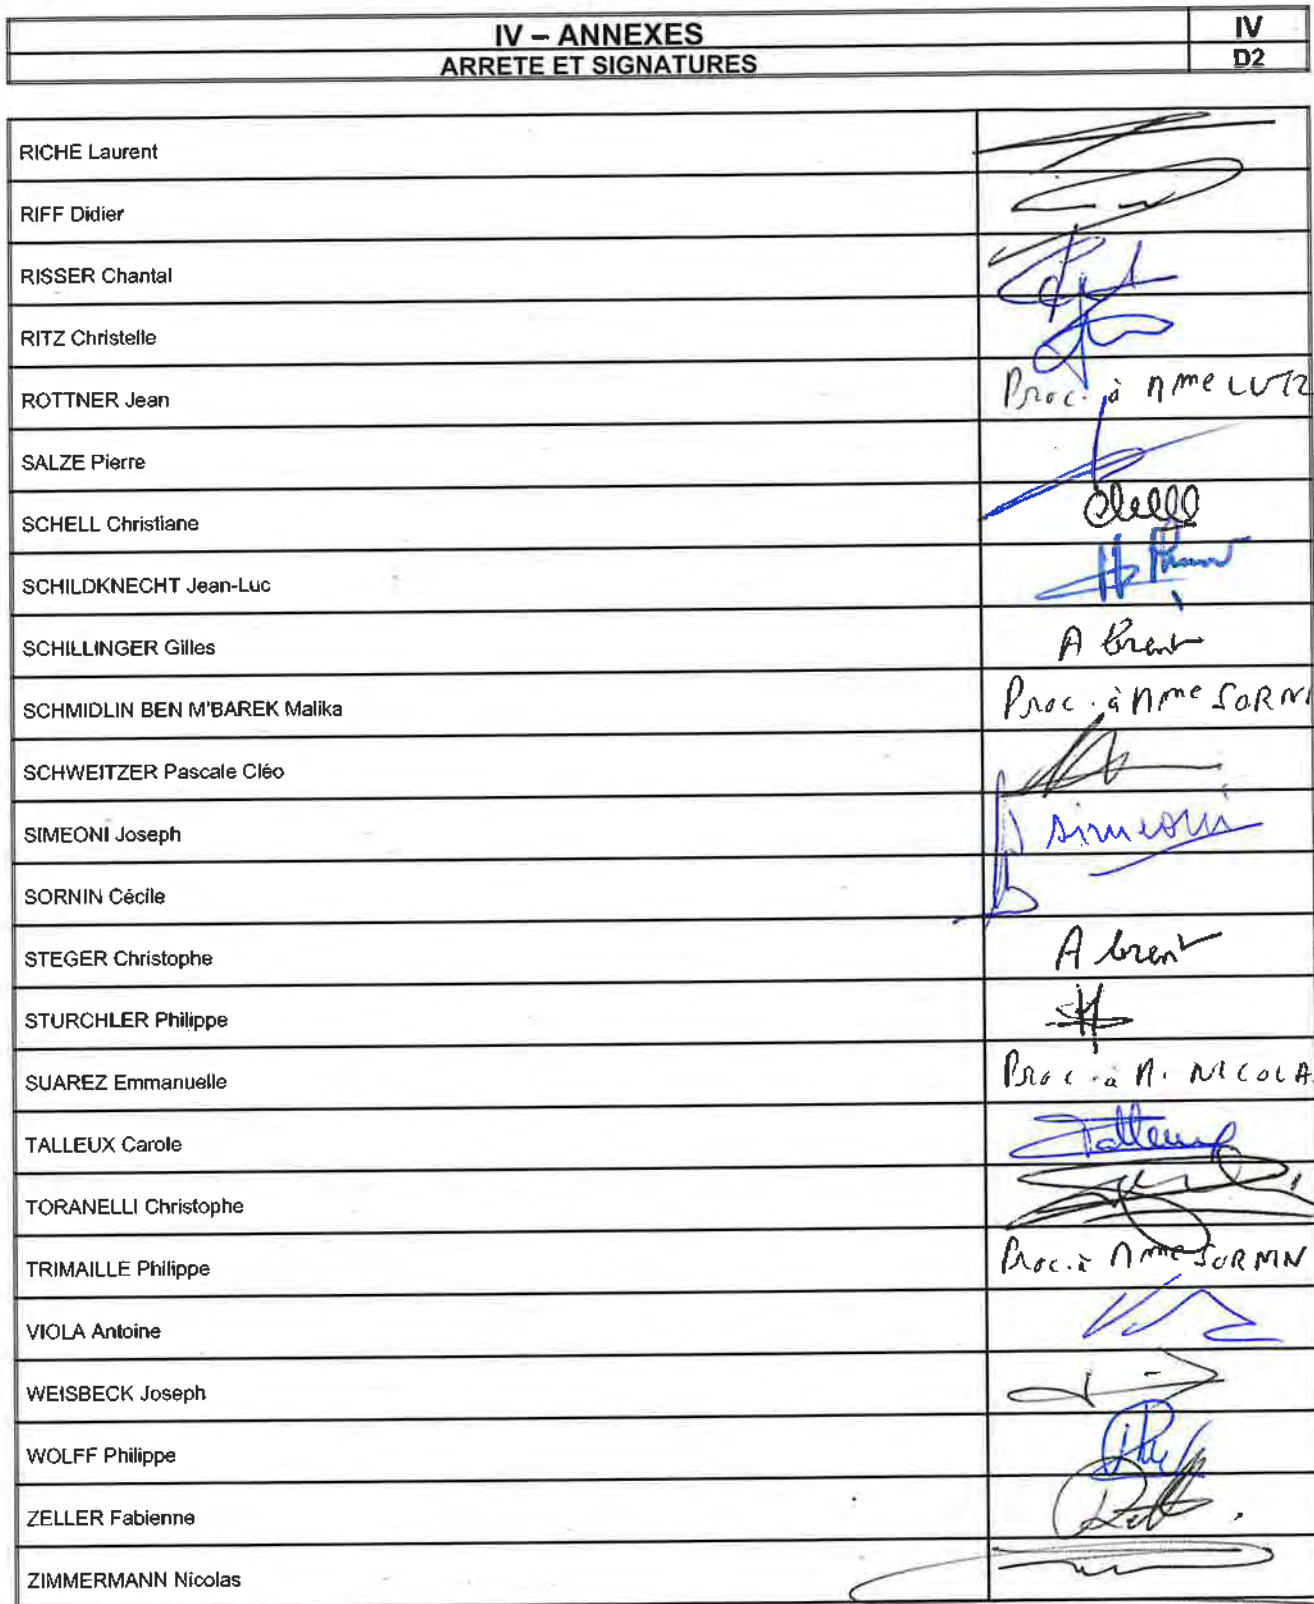 IV – ANNEXES IV
ARRETE ET SIGNATURES D2
RICHE Laurent
RIFF Didier
RISSER Chantal
RITZ Christelle
ROTTNER Jean Proc. à Mme LUTZ
SALZE Pierre
SCHELL Christiane
SCHILDKNECHT Jean-Luc
SCHILLINGER Gilles Absent
SCHMIDLIN BEN M'BAREK Malika Proc. à Mme SORNI
SCHWEITZER Pascale Cléo
SIMEONI Joseph Simeoni
SORNIN Cécile
STEGER Christophe Absent
STURCHLER Philippe
SUAREZ Emmanuelle Proc. à M. NICOLA
TALLEUX Carole Talleux
TORANELLI Christophe
TRIMAILLE Philippe Proc. à Mme SORNIN
VIOLA Antoine
WEISBECK Joseph
WOLFF Philippe
ZELLER Fabienne
ZIMMERMANN Nicolas